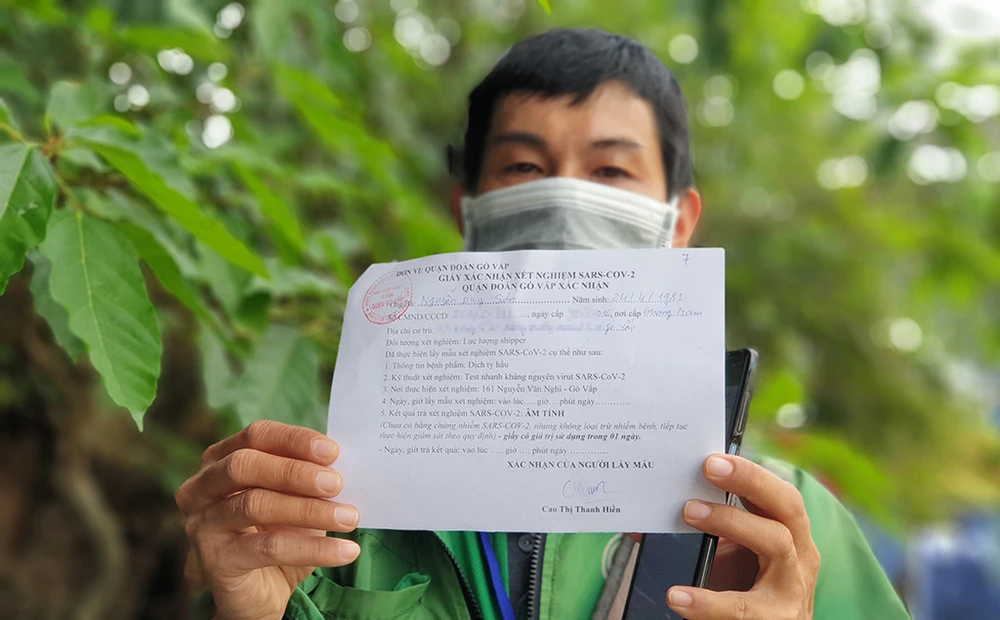 7
ĐƠN VỊ: QUẬN ĐOÀN GÒ VẤP
GIẤY XÁC NHẬN XÉT NGHIỆM SARS-COV-2
QUẬN ĐOÀN GÒ VẤP XÁC NHẬN
Nguyễn ..................... Năm sinh: 24/4/1981
Số CMND/CCCD ...., ngày cấp nơi cấp
Địa chỉ cư trú: Gò Vấp
Đối tượng xét nghiệm: Lực lượng shipper
Đã thực hiện lấy mẫu xét nghiệm SARS-CoV-2 cụ thể như sau:
1. Thông tin bệnh phẩm: Dịch tỵ hầu
2. Kỹ thuật xét nghiệm: Test nhanh kháng nguyên virut SARS-CoV-2
3. Nơi thực hiện xét nghiệm: 161 Nguyễn Văn Nghi - Gò Vấp
4. Ngày, giờ lấy mẫu xét nghiệm: vào lúc.....giờ.... phút ngày............
5. Kết quả trả xét nghiệm SARS-COV-2: ÂM TÍNH
(Chưa có bằng chứng nhiễm SARS-COV-2, nhưng không loại trừ nhiễm bệnh, tiếp tục
thực hiện giám sát theo quy định) - giấy có giá trị sử dụng trong 01 ngày.
- Ngày, giờ trả kết quả: vào lúc .... giờ ... phút ngày ............
XÁC NHẬN CỦA NGƯỜI LẤY MẪU
Cao Thị Thanh Hiền